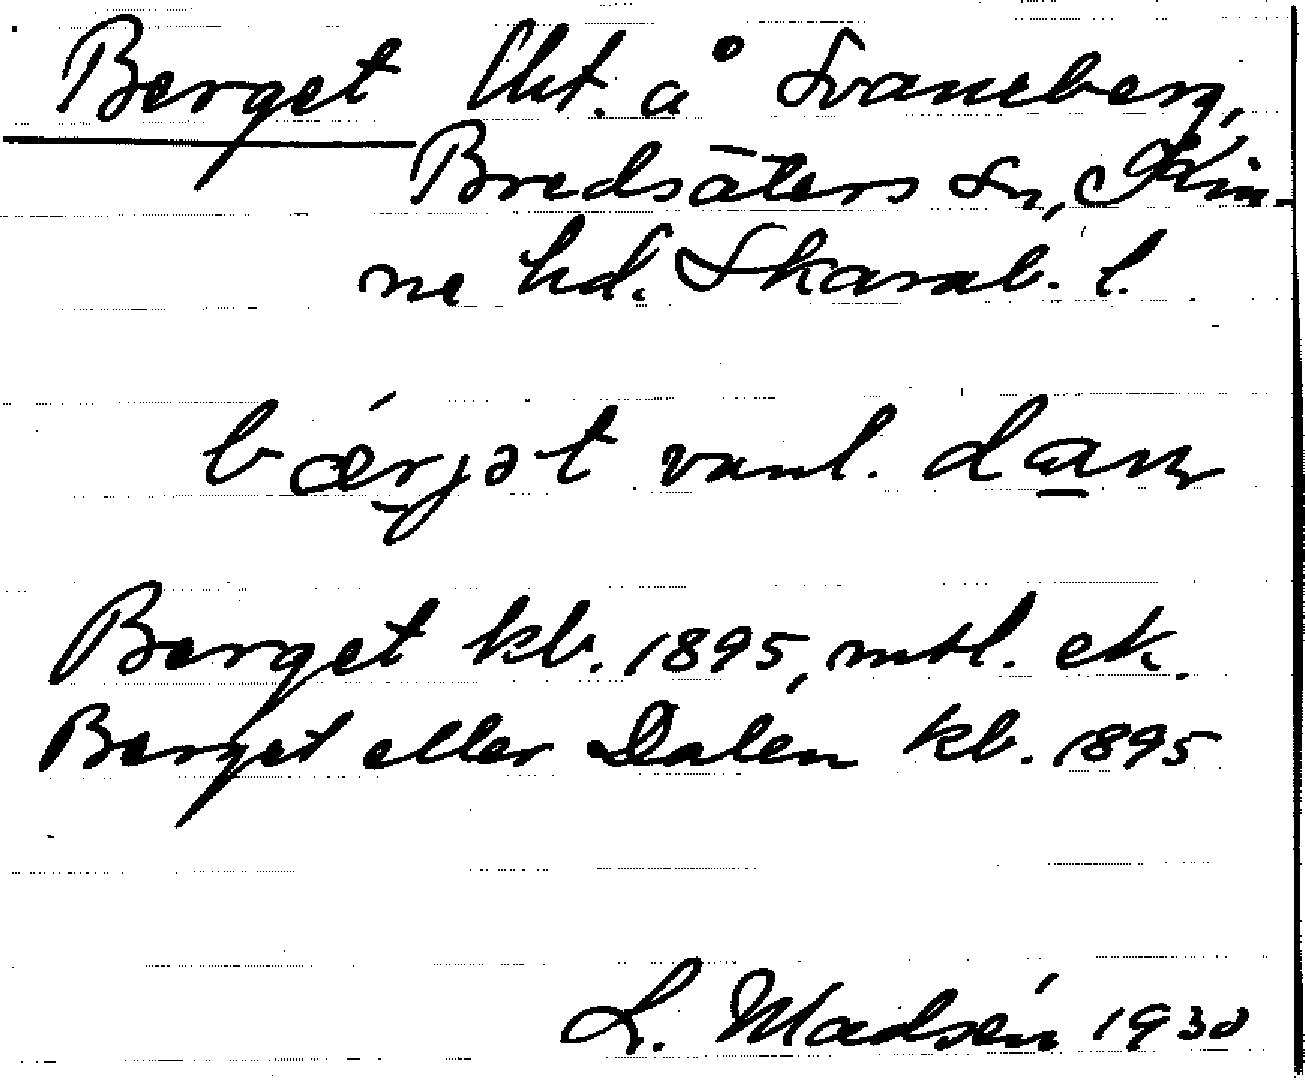 Berget lht. å Svaneberg,
Bredsäters sn, Kin-
ne hd. Skarab. l.
bǽrjət vanl. dam
Berget kb. 1895, mtl. ek.
Berget eller Dalen kb. 1895
L. Madsén 1930